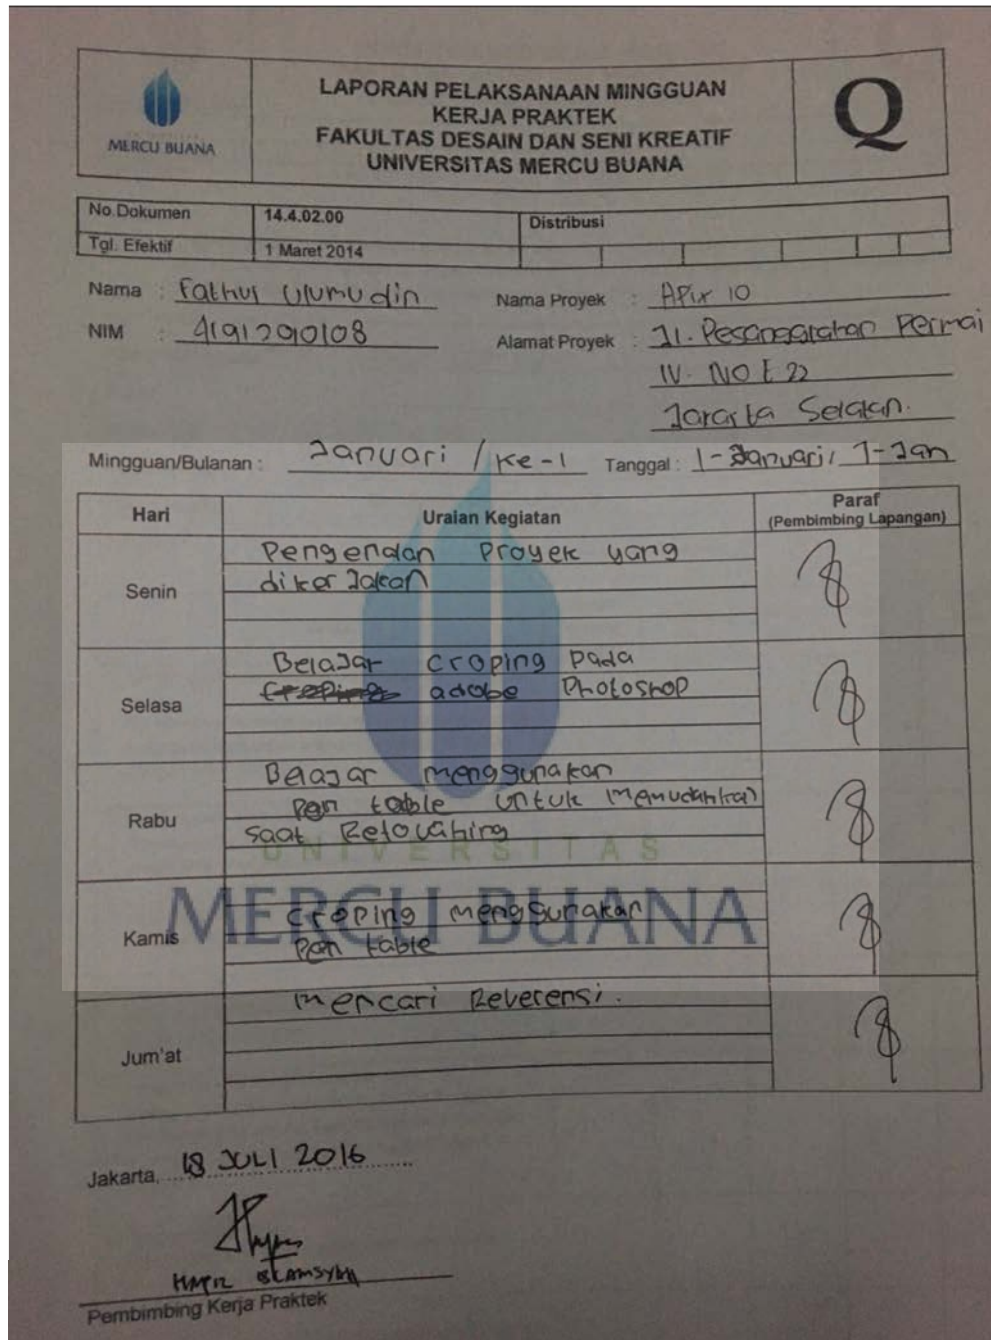 LAPORAN PELAKSANAAN MINGGUAN
KERJA PRAKTEK
FAKULTAS DESAIN DAN SENI KREATIF
UNIVERSITAS MERCU BUANA
MERCU BUANA
Q
No.Dokumen 14.4.02.00 Distribusi
Tgl. Efektif 1 Maret 2014
Nama : Fathul Ulumudin Nama Proyek : APix 10
NIM : 4191290108 Alamat Proyek : Jl. Pesanggrahan Permai
IV. NO E 22
Jakarta Selatan.
Mingguan/Bulanan : Januari / Ke-1 Tanggal : 1-Januari,
Hari Uraian Kegiatan Paraf
(Pembimbing Lapangan)
Senin
Pengenalan Proyek yang
dikerjakan
Selasa
Belajar croping pada
adobe Photoshop
Rabu
Belajar menggunakan
pen table untuk
saat
UNIVERSITAS
MERCU BUANA
Kamis
croping menggunakan
pen table
Jum'at
mencari Reverensi.
Jakarta, 18 JULI 2016
Pembimbing Kerja Praktek